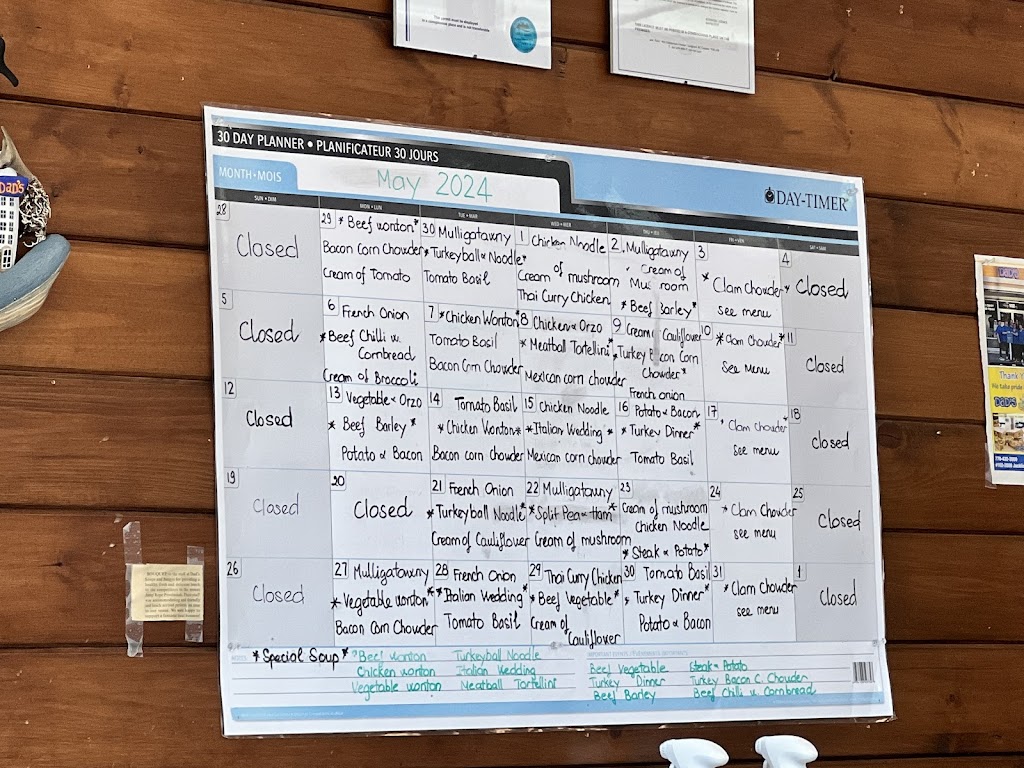 30 DAY PLANNER • PLANIFICATEUR 30 JOURS
MONTH•MOIS
May 2024
DAY-TIMER
SUN • DIM
MON • LUN
TUE • MAR
WED • MER
THU • JEU
FRI • VEN
SAT • SAM
28
Closed
29 *Beef wonton*
Bacon Corn Chowder
Cream of Tomato
30 Mulligatawny
*Turkeyball & Noodle*
Tomato Basil
1 Chicken Noodle
Cream of mushroom
Thai Curry Chicken
2 Mulligatawny
Cream of
Mushroom
*Beef Barley*
3
*Clam Chowder*
see menu
4
Closed
5
Closed
6 French Onion
*Beef Chilli w.
Cornbread
Cream of Broccoli
7 *Chicken Wonton*
Tomato Basil
Bacon Corn Chowder
8 Chicken & Orzo
*Meatball Tortellini*
Mexican corn chowder
9 Cream Cauliflower
*Turkey Bacon Corn
Chowder*
French onion
10 *Clam Chowder*
See Menu
11
Closed
12
Closed
13 Vegetable & Orzo
*Beef Barley*
Potato & Bacon
14 Tomato Basil
*Chicken Wonton*
Bacon corn Chowder
15 Chicken Noodle
*Italian Wedding*
Mexican corn chowder
16 Potato & Bacon
*Turkey Dinner*
Tomato Basil
17
*Clam Chowder*
see menu
18
Closed
19
Closed
20
Closed
21 French Onion
*Turkeyball Noodle*
Cream of Cauliflover
22 Mulligatawny
*Split Pea & Ham*
Cream of mushroom
23
Cream of mushroom
Chicken Noodle
*Steak & Potato*
24
*Clam Chowder
see menu
25
Closed
26
Closed
27 Mulligatawny
*Vegetable wonton*
Bacon Corn Chowder
28 French Onion
*Italian Wedding*
Tomato Basil
29 Thai Curry Chicken
*Beef Vegetable*
Cream of
Cauliflover
30 Tomato Basil
*Turkey Dinner*
Potato & Bacon
31
*Clam Chowder
see menu
1
Closed
NOTES
*Special Soup*
Beef wonton
Chicken wonton
Vegetable wonton
Turkeyball Noodle
Italian Wedding
Meatball Tortellini
Beef Vegetable
Turkey Dinner
Beef Barley
Steak & Potato
Turkey Bacon C. Chowder
Beef Chilli w. Cornbread
Dad's
Thank Y
DADS